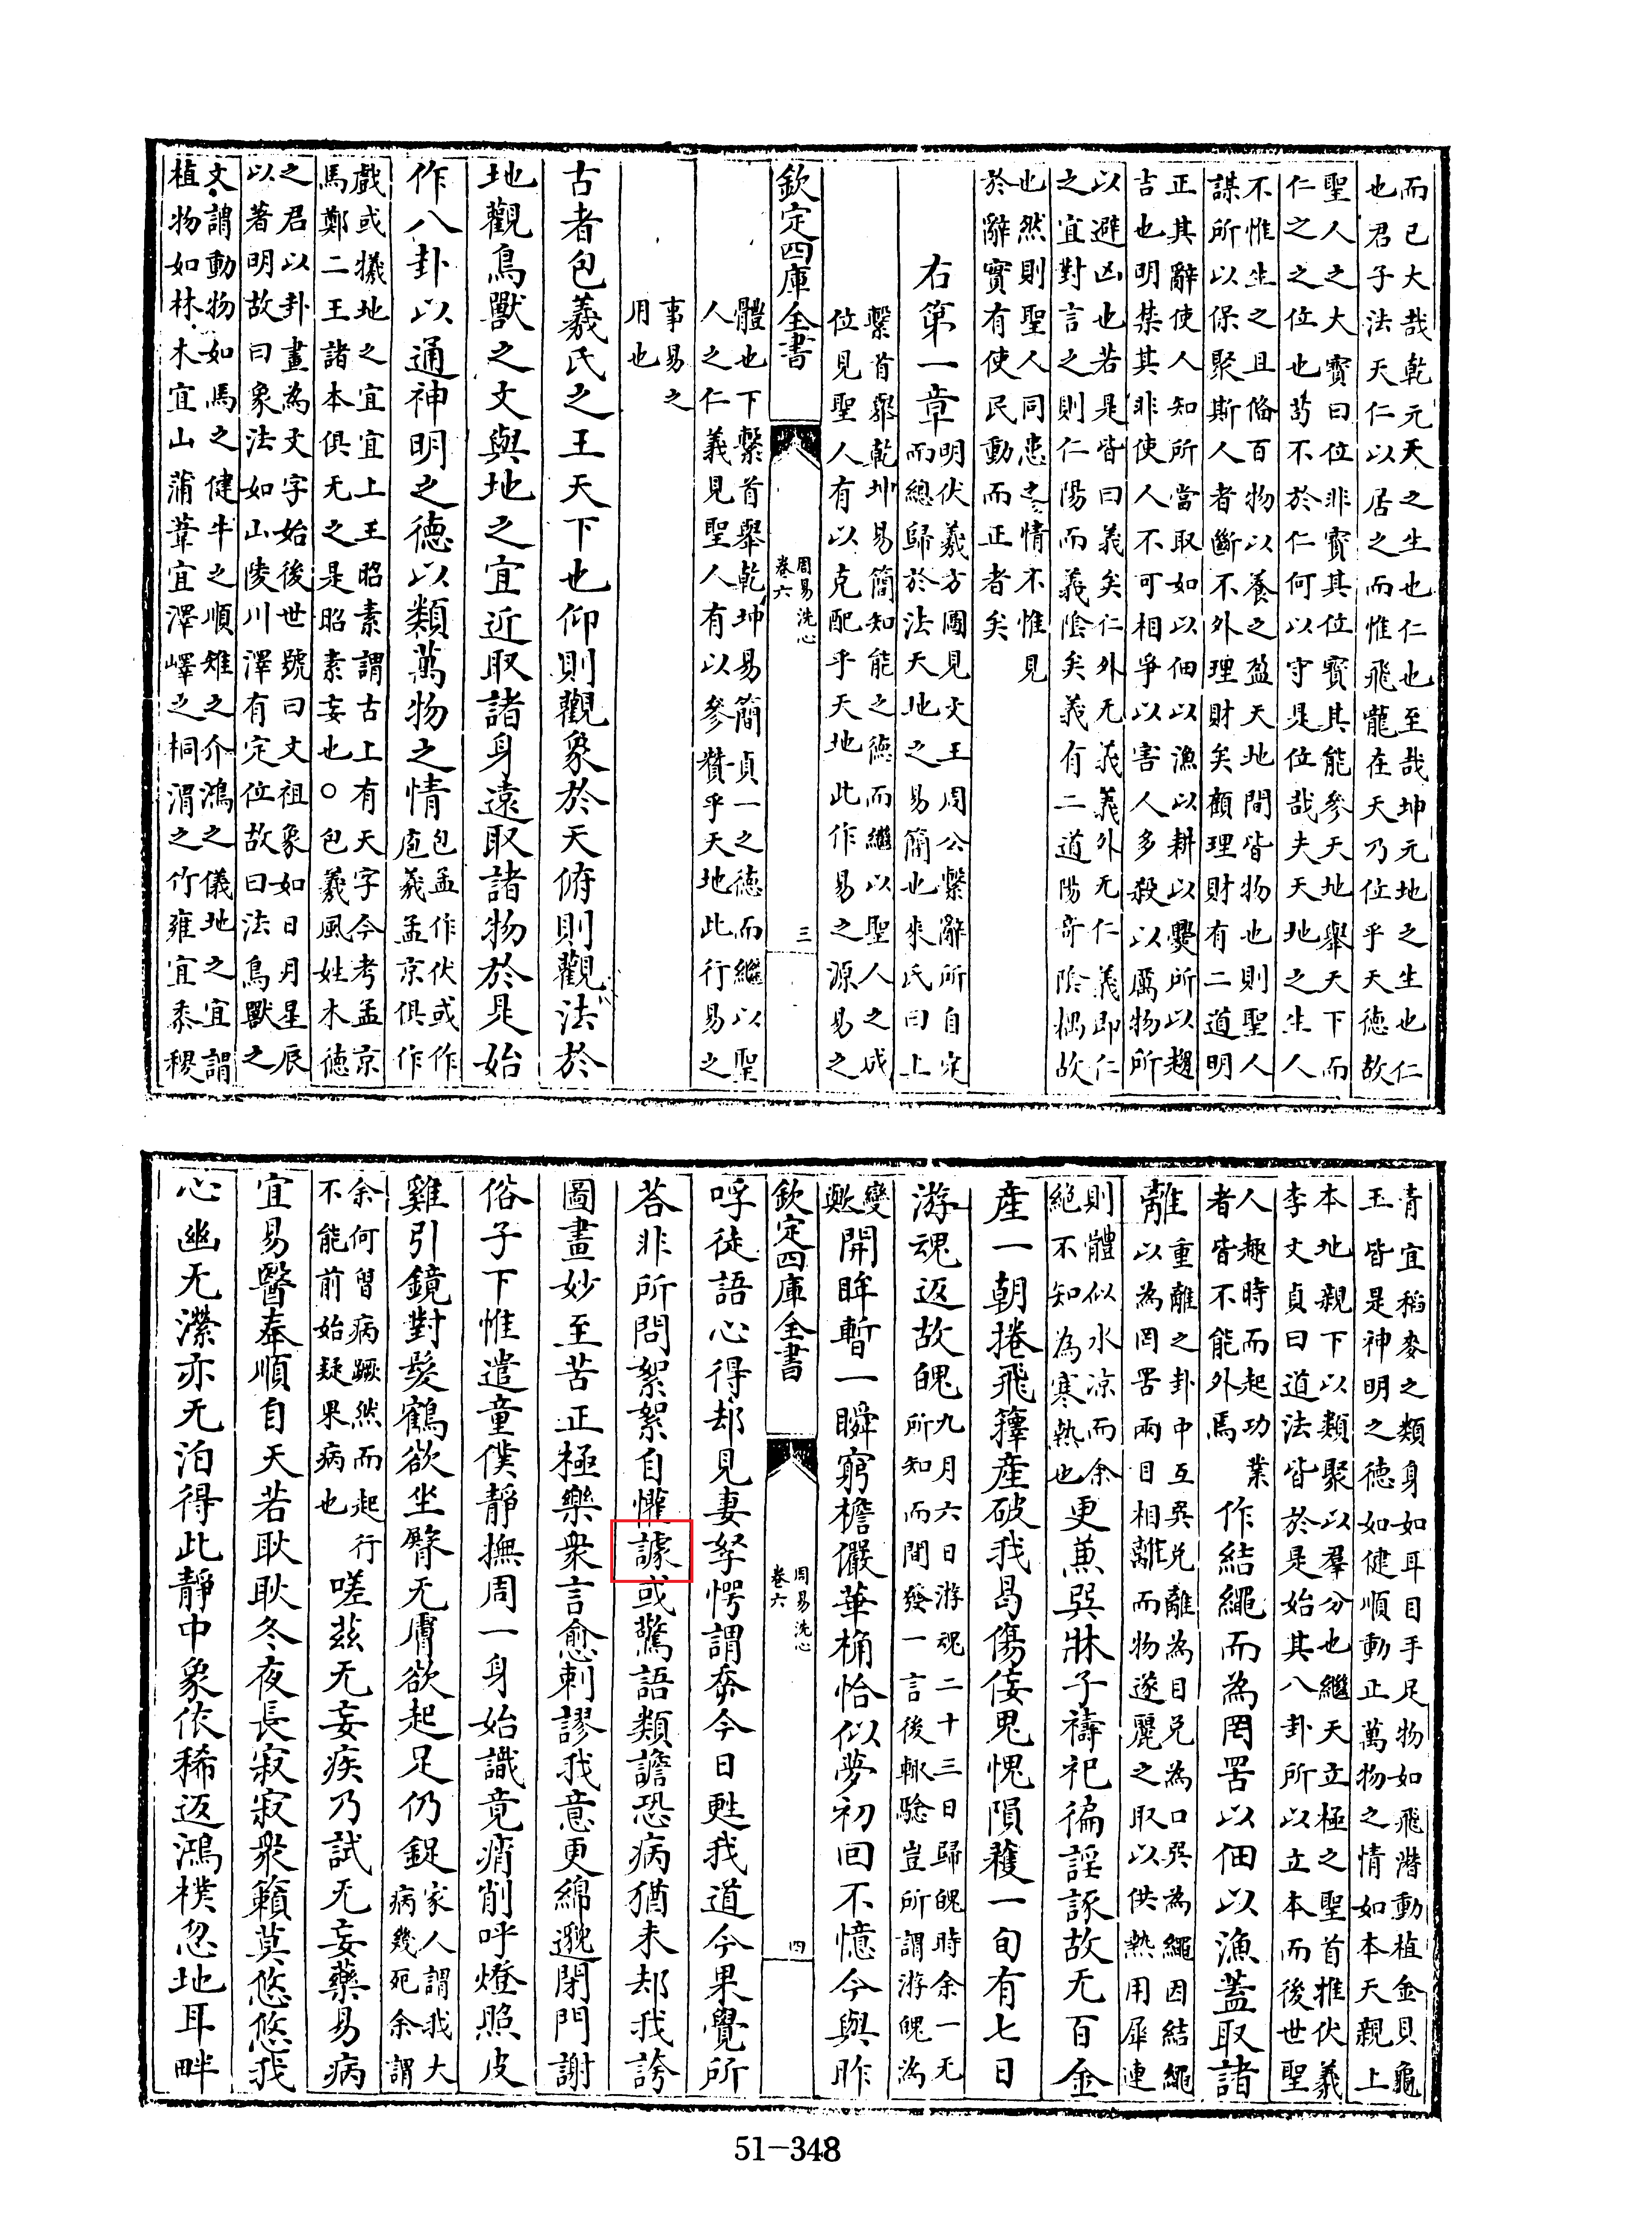 而已大哉乾元天之生也仁也至哉坤元地之生也仁
也君子法天仁以居之而惟飛龍在天乃位乎天德故
聖人之大寳曰位非寳其位寳其能參天地舉天下而
仁之之位也茍不於仁何以守是位哉夫天地之生人
不惟生之且俻百物以養之盈天地間皆物也則聖人
謀所以保聚斯人者斷不外理財矣顧理財有二道明
正其辭使人知所當取如以佃以漁以耕以㸑所以趨
吉也明禁其非使人不可相爭以害人多殺以厲物所
以避凶也若是皆曰義矣仁外无義義外无仁義即仁
之宜對言之則仁陽而義隂矣義有二道陽竒隂耦故
也然則聖人同患之情不惟見
於辭實有使民動而正者矣
右第一章
明伏羲方圖見文王周公繫辭所自定
而總歸於法天地之易簡也來氏曰上
繫首舉乾坤易簡知能之德而繼以聖人之成
位見聖人有以克配乎天地此作易之源易之
欽定四庫全書
周易洗心
卷六
三
體也下繫首舉乾坤易簡貞一之德而繼以聖
人之仁義見聖人有以參贊乎天地此行易之
事易之
用也
古者包羲氏之王天下也仰則觀象於天俯則觀法於
地觀鳥獸之文與地之宜近取諸身遠取諸物於是始
作八卦以通神明之德以類萬物之情
包孟作伏或作
庖羲孟京俱作
戯或犧地之宜宜上王昭素謂古上有天字今考孟京
馬鄭二王諸本俱无之是昭素妄也○包羲風姓木德
之君以卦畫為文字始後世號曰文祖象如日月星辰
以著明故曰象法如山陵川澤有定位故曰法鳥獸之
文謂動物如馬之健牛之順雉之介鴻之儀地之宜謂
植物如林木宜山蒲葦宜澤嶧之桐渭之竹雍宜黍稷
青宜稻麥之類身如耳目手足物如飛潛動植金貝龜
玉皆是神明之德如健順動正萬物之情如本天親上
本地親下以類聚以羣分也繼天立極之聖首推伏羲
李文貞曰道法皆於是始其八卦所以立本而後世聖
人趣時而起功業
者皆不能外焉
作結繩而為罔罟以佃以漁蓋取諸
離
重離之卦中互巽兑離為目兑為口巽為繩因結繩
以為罔罟兩目相離而物遂麗之取以供熱用犀連
則體似水凉而余
絶不知為寒熱也
更兼巽牀子禱祀徧謡諑故无百金
産一朝捲飛籜産破我曷傷倿鬼愧隕穫一旬有七日
游魂返故魄
九月六日游魂二十三日歸魄時余一无
所知而間發一言後輙騐豈所謂游魄為
變
歟
開眸暫一瞬窮檐儼華桷恰似夢初回不憶今與昨
欽定四庫全書
周易洗心
卷六
四
呼徒語心得却見妻孥愕謂奔今日甦我道今果覺所
荅非所問絮絮自懽謔或驚語類譫恐病猶未却我誇
圖畫妙至苦正極樂衆言愈刺謬我意更綿邈閉門謝
俗子下惟遣童僕靜撫周一身始識竟痟削呼燈照皮
雞引鏡對髮鶴欲坐臀无膚欲起足仍鋜
家人謂我大
病幾死余謂
余何曽病蹶然而起行
不能前始疑果病也
嗟茲无妄疾乃試无妄藥易病
宜易醫奉順自天若耿耿冬夜長寂寂衆籟莫悠悠我
心幽无滯亦无泊得此靜中象依稀返鴻樸忽地耳畔
51-348